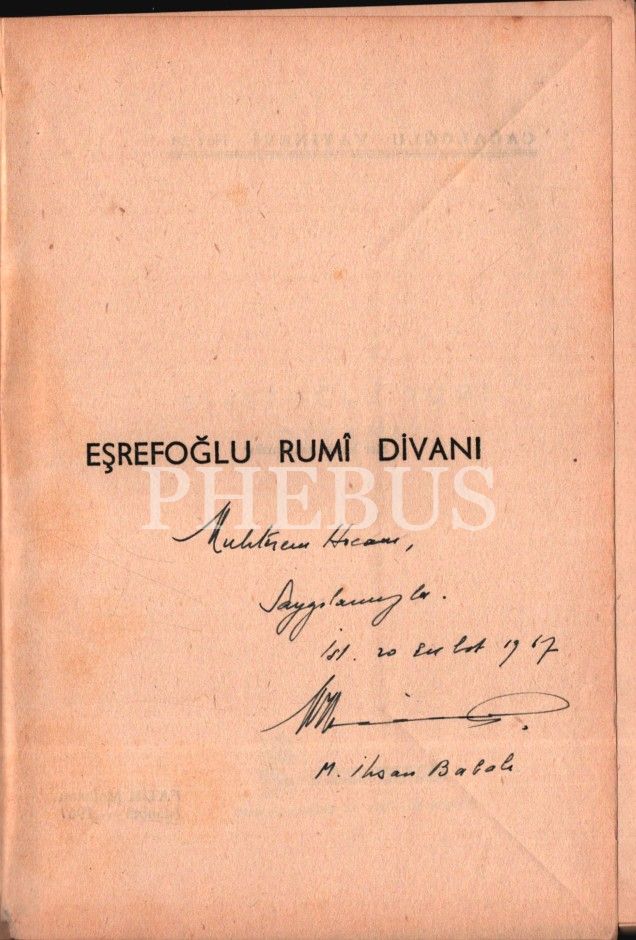 EŞREFOĞLU RUMÎ DİVANI
PHEBUS
Muhterem Hocam,
Saygılarımızla.
İst. 20 Eylül 1967
M. İhsan Babalı